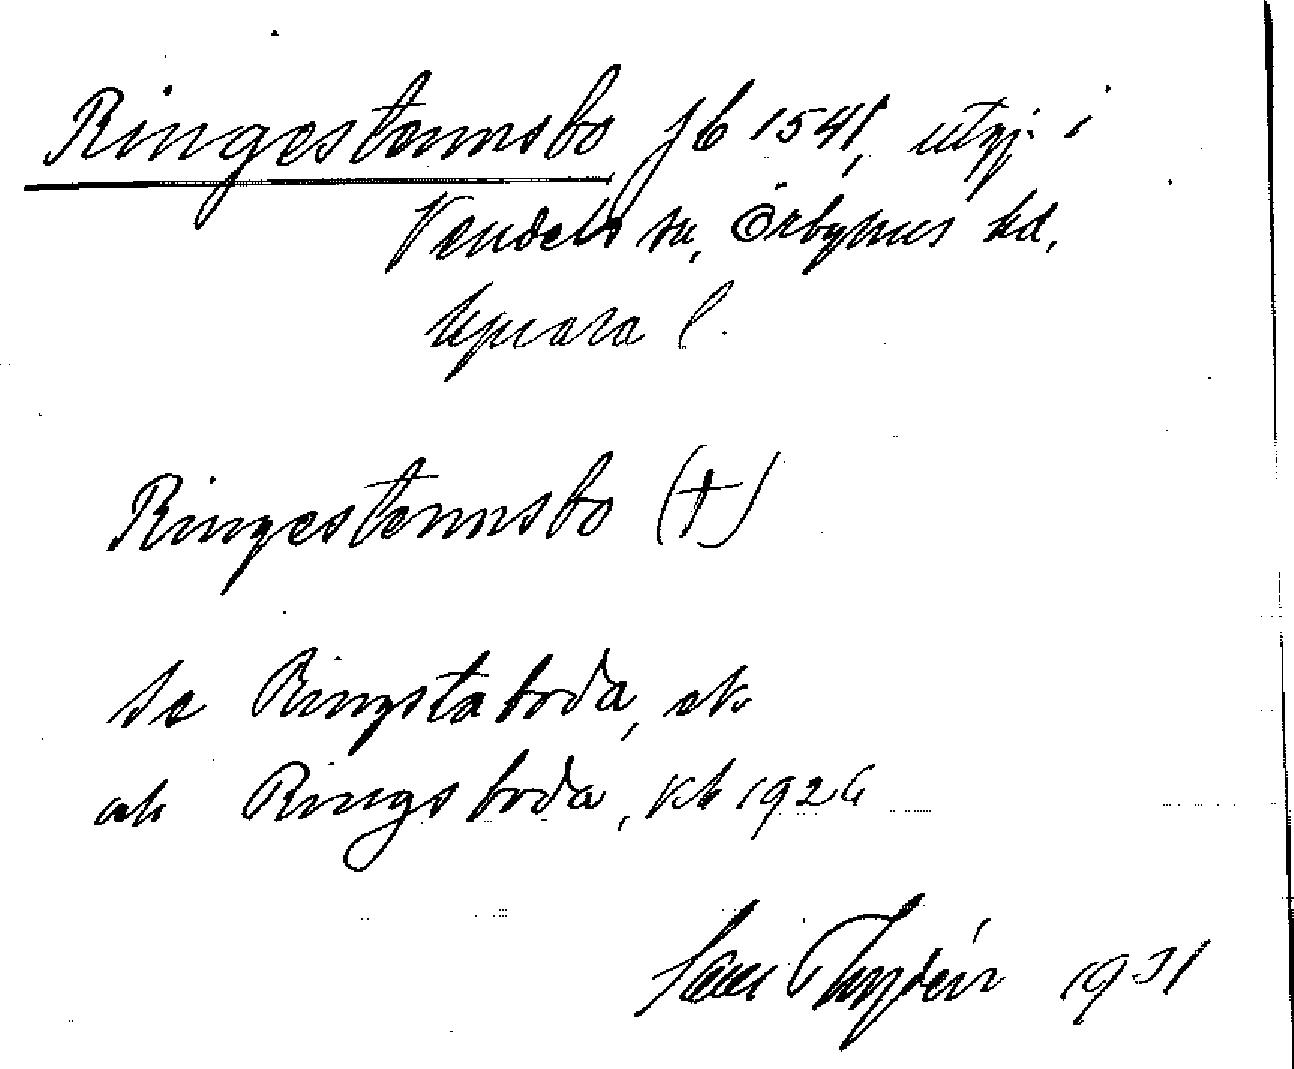 Ringestemsbo jb 1541, utgj. i
Vendels sn, Örbyhus hd,
Uppsala l.
Ringestemsbo (†)
se Ringstaboda, ek.
och Ringsboda, kb 1926
Thydén 1931